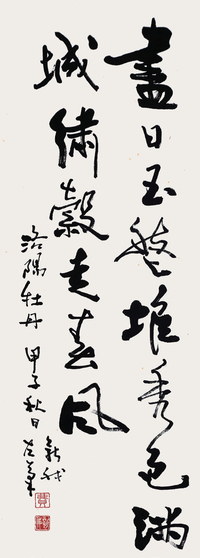 盡日玉盤堆秀色滿
城繡轂走春風
洛陽牡丹 甲子秋日
新我左筆